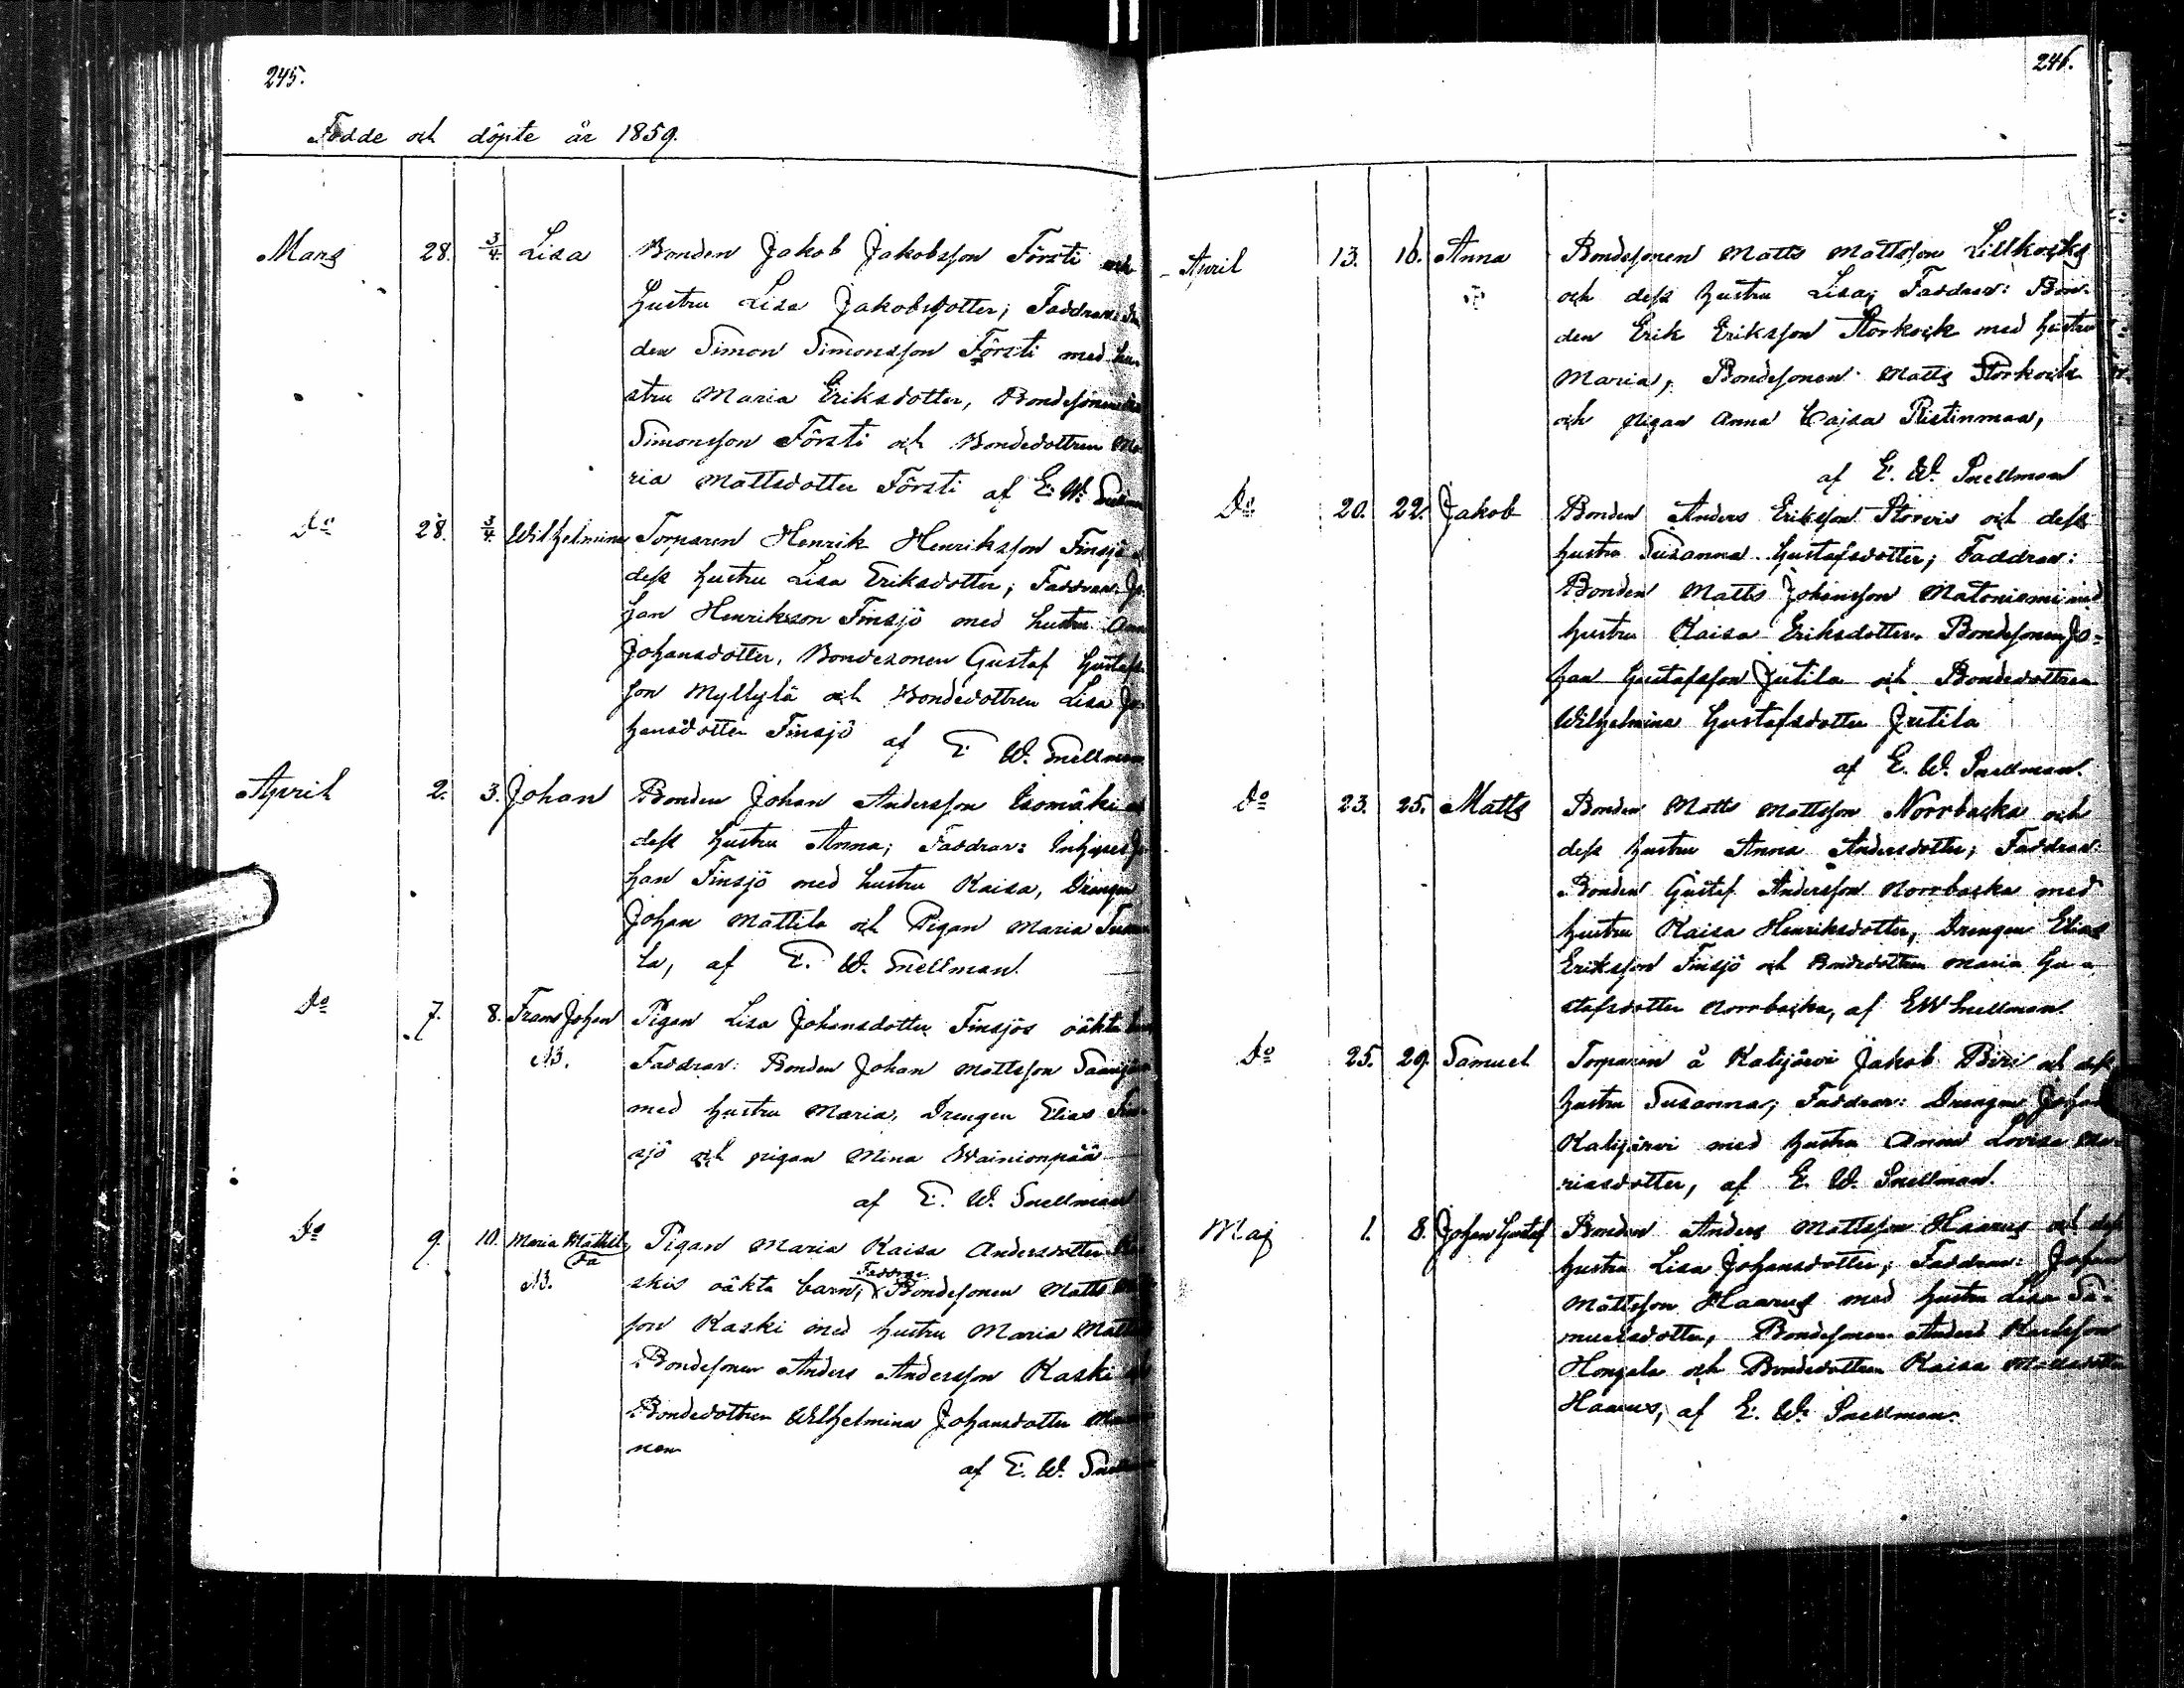 245.
Födde och döpte år 1859.
Mars 28. 3/4. Lisa Bonden Jakob Jakobsson Försti och
hustru Lisa Jakobsdotter; Faddrar:
den Simon Simonsson Försti med hu-
stru Maria Eriksdotter, Bondesonen
Simonsson Försti och Bondedottren Ma-
ria Mattsdotter Försti af E. W. Snellman
Do 28. 3/4. Wilhelmina Torparen Henrik Henriksson Finsjö
dess hustru Lisa Eriksdotter; Faddrar: Jo-
han Henriksson Finsjö med hustru Anna
Johansdotter, Bondesonen Gustaf Gustafs-
son Myllylä och Bondedottren Lisa Jo-
hansdotter Finsjö af E. W. Snellman
April 2. 3. Johan Bonden Johan Andersson Isomäki
dess hustru Anna; Faddrar: Inhyses Jo-
han Finsjö med hustru Kaisa, Drengen
Johan Mattila och Pigan Maria
la, af E. W. Snellman.
Do 7. 8. Frans Johan Pigan Lisa Johansdotter Finsjös oäkta barn
NB. Faddrar: Bonden Johan Mattsson
med hustru Maria, Drengen Elias Fin-
sjö och pigan Mina Wainionpää
af E. W. Snellman
Do 9. 10. Maria Mathil- Pigan Maria Kaisa Andersdotter Ka-
da
NB. skis oäkta barn; Faddrar Bondesonen Matts
son Kaski med hustru Maria
Bondesonen Anders Andersson Kaski och
Bondedottren Wilhelmina Johansdotter
nen
af E. W. Snellman
246.
April 13. 16. Anna Bondesonen Matts Mattsson Lillkoski
och dess hustru Lisa; Faddrar: Bon-
den Erik Eriksson Storkock med hustru
Maria, Bondesonen Matts Storkock
och pigan Anna Cajsa Ristinmaa,
af E. W. Snellman
Do 20. 22. Jakob Bonden Anders Eriksson och dess
hustru Susanna Gustafsdotter; Faddrar:
Bonden Matts Johansson Matoniemi med
hustru Kaisa Eriksdotter, Bondesonen Jo-
han Gustafsson Jutila och Bondedottren
Wilhelmina Gustafsdotter Jutila
af E. W. Snellman.
Do 23. 25. Matts Bonden Matts Mattsson Norrbacka och
dess hustru Anna Andersdotter; Faddrar:
Bonden Gustaf Andersson Norrbacka med
hustru Kaisa Henriksdotter, Drengen Elias
Eriksson Finsjö och Bondedottren Maria Gu-
stafsdotter Norrbacka, af E W Snellman.
Do 25. 29. Samuel Torparen å Kalijärvi Jakob och dess
hustru Susanna; Faddrar: Drengen Johan
Kalijärvi med hustru Anna Lovisa Ma-
riasdotter, af E. W. Snellman.
Maj 1. 8. Johan Gustaf Bonden Anders Mattsson Haarus och dess
hustru Lisa Johansdotter; Faddrar: Johan
Mattsson Haarus med hustru Lisa Sa-
muelsdotter, Bondesonen Anders Karlsson
Hongala och Bondedottren Kaisa Mattsdotter
Haarus, af E. W. Snellman.